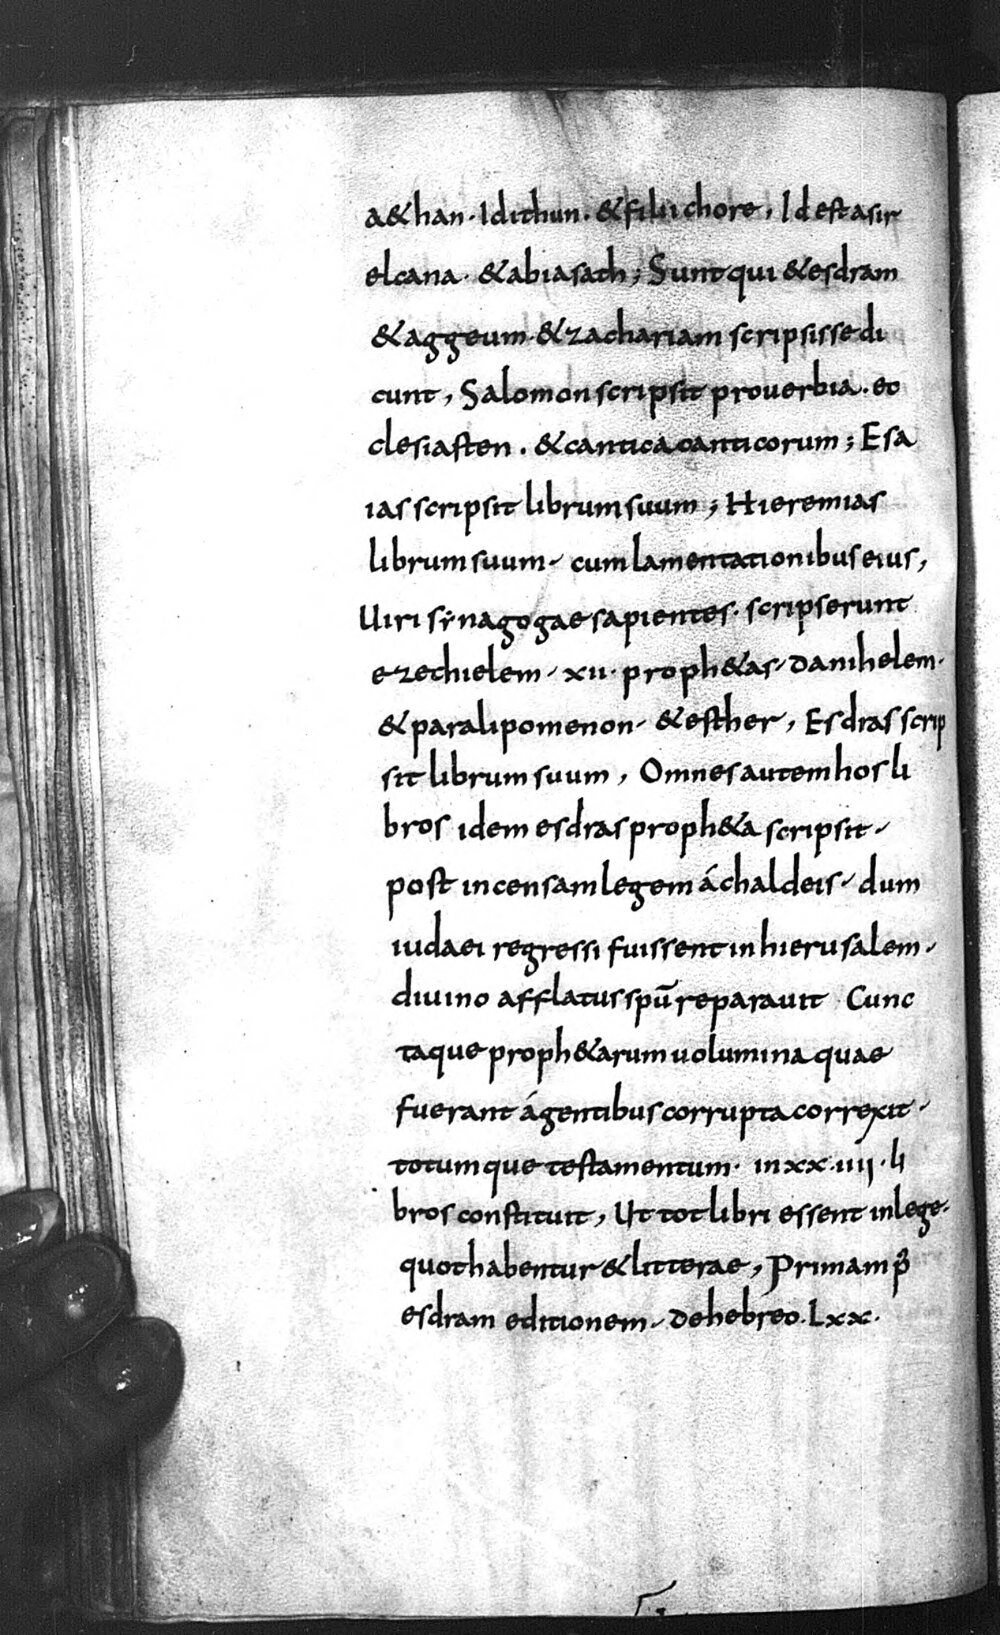 a&han · Idithun · &filii chore, Id est asir
elcana · &abiasath; Sunt qui &esdram
&aggeum · &zachariam scripsisse di
cunt, Salomon scripsit prouerbia · ec
clesiasten . &cantica canticorum; Esa
ias scripsit librum suum; Hieremias
librum suum · cum lamentationibus eius,
Uiri synagogae sapientes · scripserunt
ezechielem · xii · proph&as · danihelem ·
&paralipomenon · &esther, Esdras scrip
sit librum suum, Omnes autem hos li
bros idem esdras proph&a scripsit ·
post incensam legem á chaldeis · dum
iudaei regressi fuissent in hierusalem ·
diuino afflatus spū reparauit Cunc
taque proph&arum uolumina quae
fuerant á gentibus corrupta correxit ·
totumque testamentum · in xx · iiij · li
bros constituit, Ut tot libri essent in lege ·
quot habentur &litterae, Primam p̄
esdram editionem · de hebreo · Lxx ·